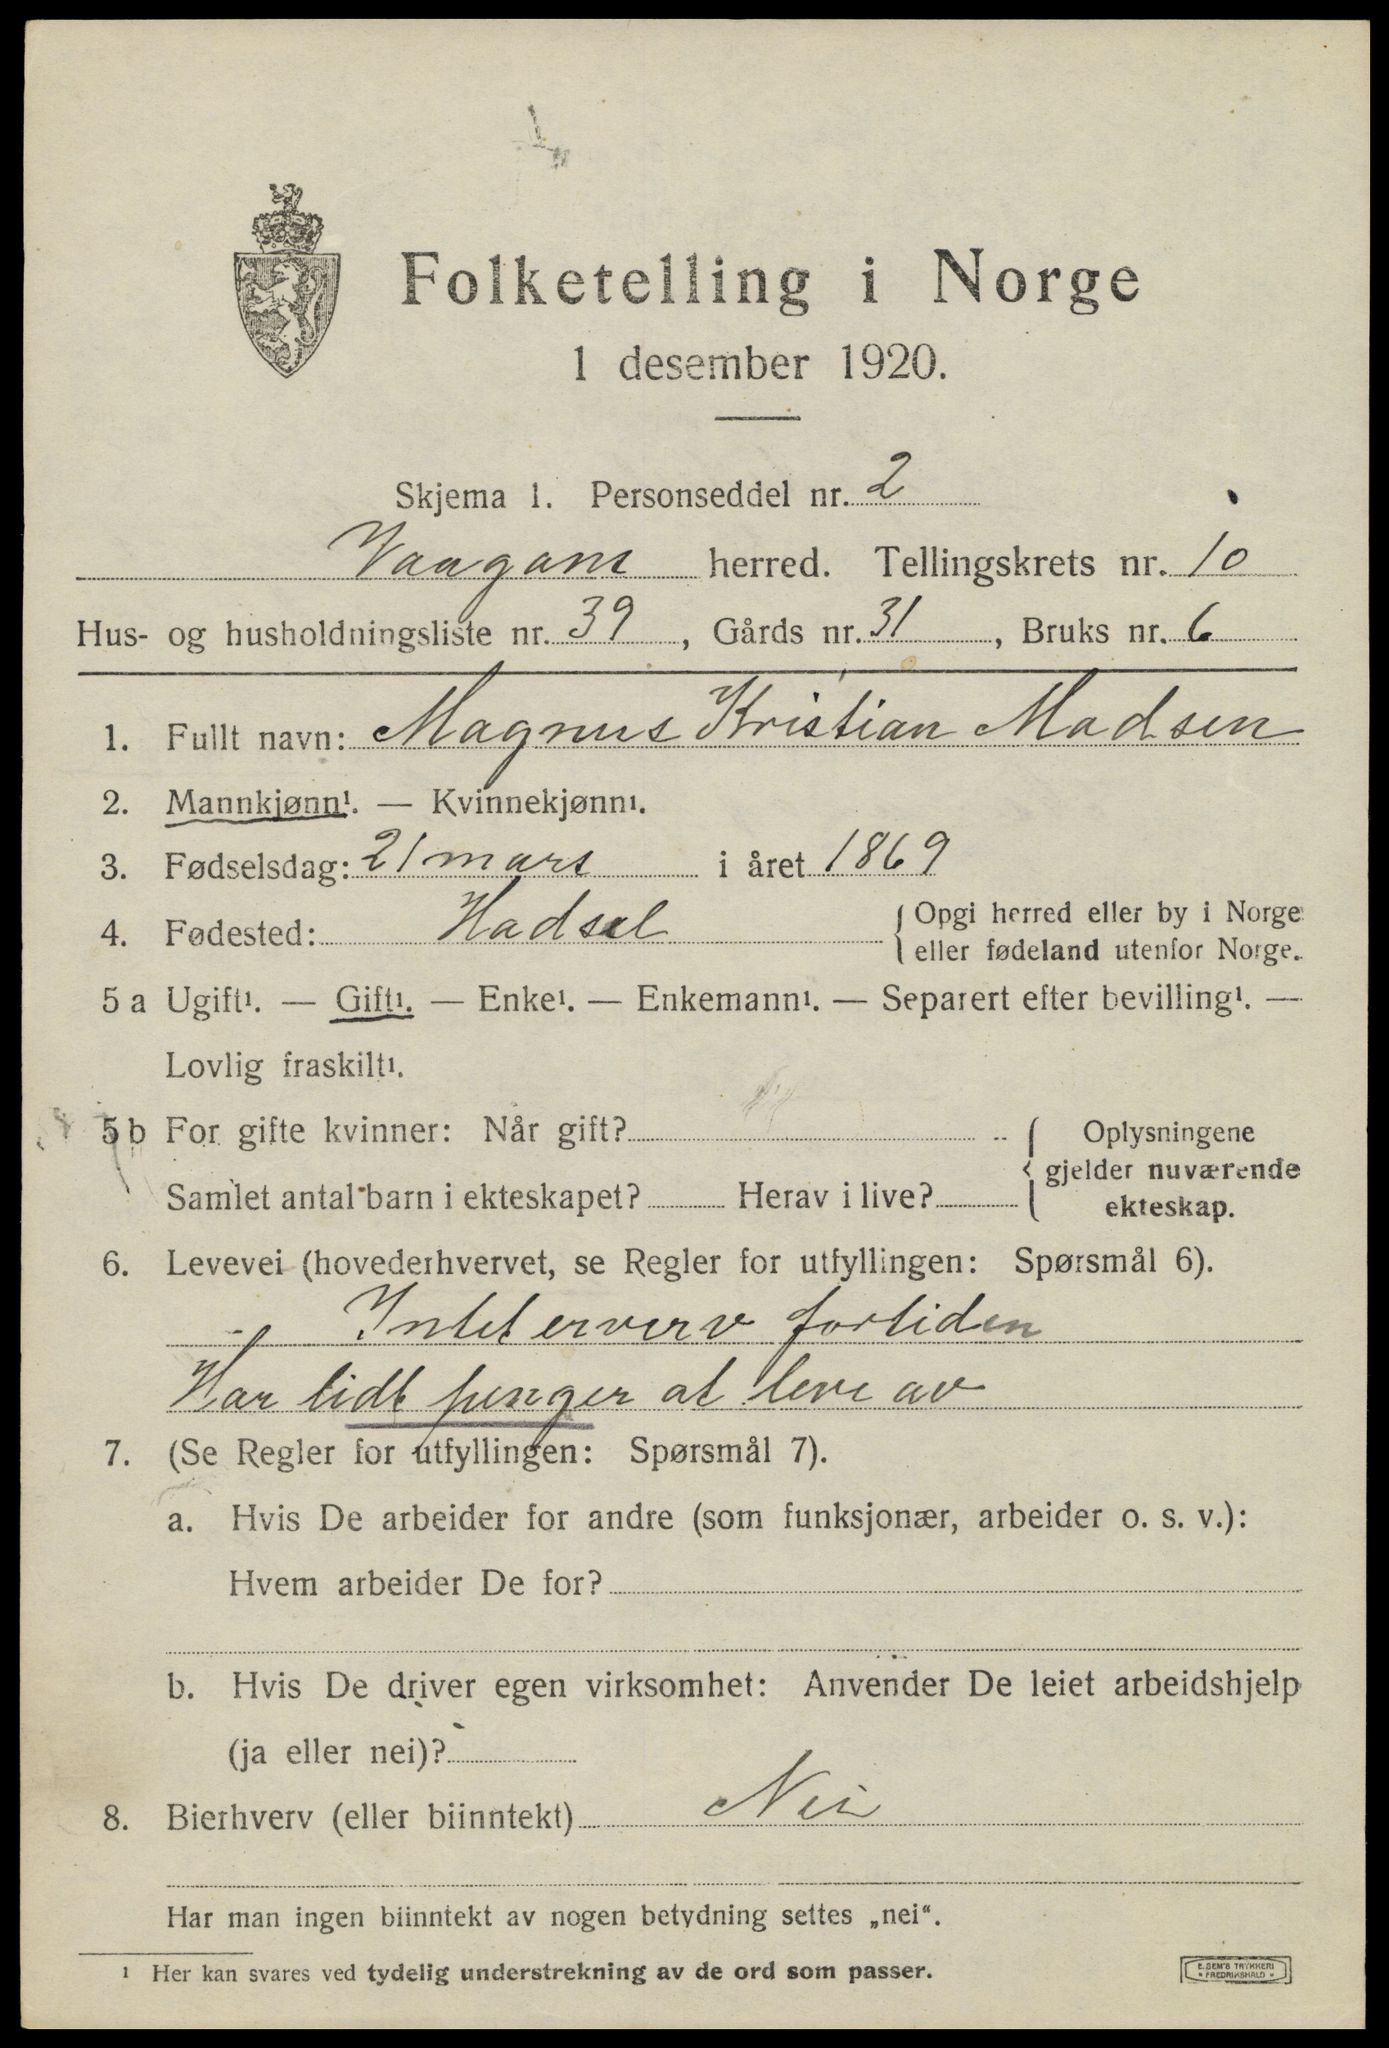 Folketelling i Norge
1 desember 1920.
Skjema 1. Personseddel nr. 2
Vaagan herred. Tellingskrets nr. 10
Hus- og husholdningsliste nr. 39, Gårds nr. 31, Bruks nr. 6
1. Fullt navn: Magnus Kristian Madsen
2. Mannkjønn¹. — Kvinnekjønn¹.
3. Fødselsdag: 21 mars i året 1869
4. Fødested: Hadsel { Opgi herred eller by i Norge
eller fødeland utenfor Norge.
5 a Ugift¹. — Gift¹. — Enke¹. — Enkemann¹. — Separert efter bevilling¹. —
Lovlig fraskilt¹.
5 b For gifte kvinner: Når gift? { Oplysningene
gjelder nuværende
Samlet antal barn i ekteskapet? Herav i live? ekteskap.
6. Levevei (hovederhvervet, se Regler for utfyllingen: Spørsmål 6).
Intet erverv fortiden
Har lidt penger at leve av
7. (Se Regler for utfyllingen: Spørsmål 7).
a. Hvis De arbeider for andre (som funksjonær, arbeider o. s. v.):
Hvem arbeider De for?
b. Hvis De driver egen virksomhet: Anvender De leiet arbeidshjelp
(ja eller nei)?
8. Bierhverv (eller biinntekt) Nei
Har man ingen biinntekt av nogen betydning settes „nei“.
¹ Her kan svares ved tydelig understrekning av de ord som passer.
E. SEM'S TRYKKERI
* FREDRIKSHALD *